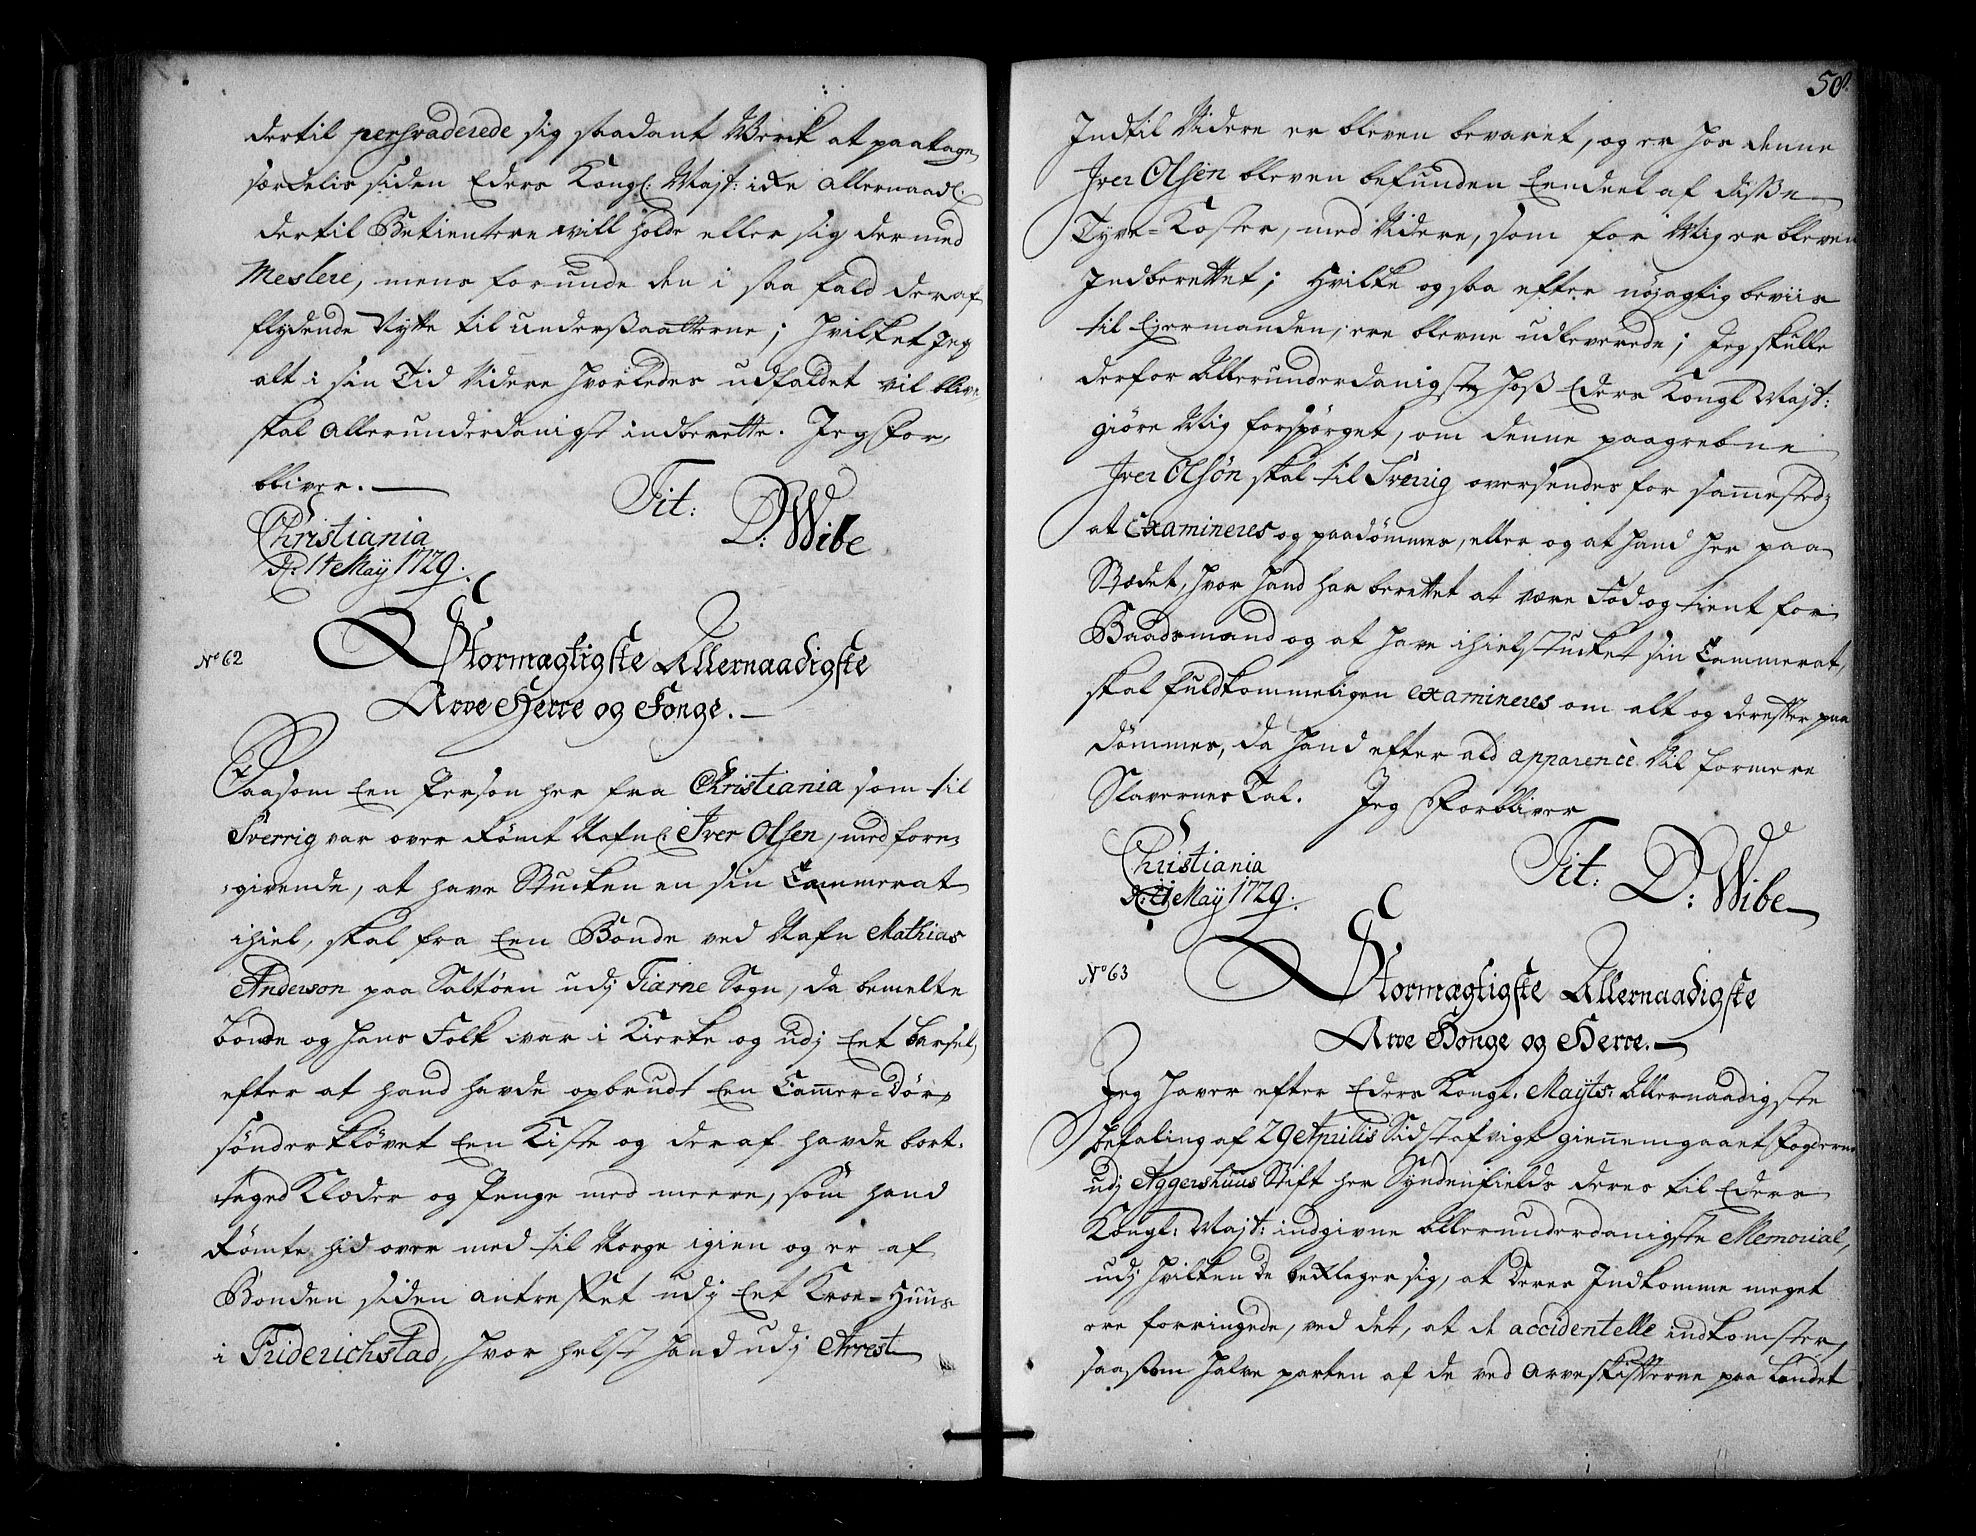 dertil persvaderede sig saadant Werck at paatage,
særdelis siden Eders Kongl: Majt: icke allernaadl:
dertil Betientere will holde eller sig dermed
Meslere, mens forunde den i saa fald deraf
flydende Nytte til undersaatterne; hvilket Jeg
alt i sin Tid videre hvorledes udfaldet vil blive,
skal allerunderdanigst indberette. Jeg for,
bliver.
Tit: D: Wibe
Christiania
d: 14 Maÿ 1729.
No 62
Stormægtigste Allernaadigste
Arve Herre og Konge.
Saasom Een Person her fra Christiania som til
Sverrig var over Rømt Nafnl. Iver Olsen, med fore-
givende, at have Stucken en sin Cammerat
ihiel, skal fra Een Bonde ved Nafn Mathias
Anderson paa Saltøen udj Tiærne Sogn, da bemelte
bonde og hans Folk var i Kierke og udj Eet barsel,
efter at hand havde opbrudt Een Camer-Dør,
sønderkløvet Een Kiste og deraf havde bort-
taged Klæder og Penge med meere, som hand
Rømte hid over med til Norge igien og er af
Bonden siden antreffet udj Eet Kroe-Huus
i Friderichstad, hvor helst hand udj Arrest
50.
Indtil Videre er bleven bevaret, og er hos denne
Iver Olsen bleven befunden Eendeel af disse
Tyve-Koster, med Videre, som for Mig er bleven
Indberettet; Hvilke og saa efter nøjagtig beviis
til Ejermanden, ere blevne udleverede; Jeg skulle
derfor Allerunderdanigst hoss Eders Kongl Majt:
giøre Mig forspørget, om denne paagrebne
Iver Olsøn skal til Sverrig oversendes for sammested
at Examineres og paadømmes, eller og at hand her paa
Stædet, hvor hand har berettet at være Fød og tient for
Baadsmand og at have ihielstucket sin Cammerat,
skal fuldkommeligen examineres om alt og derefter paa
dømmes, da hand efter ald apparence vil formere
Slavernes Tal. Jeg Forbliver
Tit: D: Wibe
Christiania
d: 21 Maÿ 1729.
No 63
Stormægtigste Allernaadigste
Arve Konge og Herre.
Jeg haver efter Eders Kongl. Mayts. Allernaadigste
befaling af 29 Aprilis Sidst afvigt giennemgaaet Fogderne
udj Aggershuus Stift her Syndenfields deres til Eders
Kongl. Majt: indgivne Allerunderdanigste Memorial,
udj hvilken de beklager sig, at deres Indkomme meget
ere forringede, ved det, at de accidentelle indkomster,
saasom halve parten af de ved Arveskifterne paa Landet